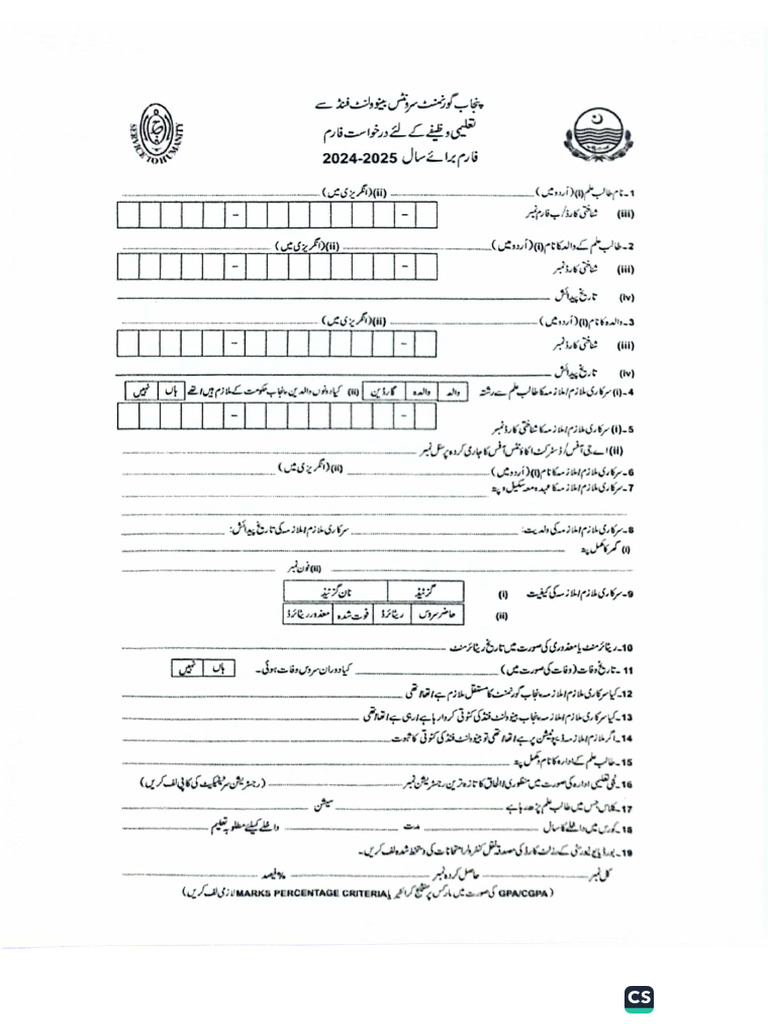 پنجاب گورنمنٹ سرونٹس بینوولنٹ فنڈ سے
تعلیمی وظیفے کے لئے درخواست فارم
فارم برائے سال 2025-2024
SERVICE TO HUMANITY
1۔ نام طالب علم (i) (اُردو میں) (ii) (انگریزی میں)
(iii) شناختی کارڈ/ب فارم نمبر
2۔ طالب علم کے والد کا نام (i) (اُردو میں) (ii) (انگریزی میں)
(iii) شناختی کارڈ نمبر
(iv) تاریخ پیدائش
3۔ والدہ کا نام (i) (اُردو میں) (ii) (انگریزی میں)
(iii) شناختی کارڈ نمبر
(iv) تاریخ پیدائش
4۔ (i) سرکاری ملازم/ملازمہ کا طالب علم سے رشتہ والد والدہ گارڈین (ii) کیا دونوں والدین پنجاب حکومت کے ملازم ہیں/تھے ہاں نہیں
5۔ (i) سرکاری ملازم/ملازمہ کا شناختی کارڈ نمبر
(ii) اے جی آفس/ڈسٹرکٹ اکاؤنٹس آفس کا جاری کردہ پرسنل نمبر
6۔ سرکاری ملازم/ملازمہ کا نام (i) (اُردو میں) (ii) (انگریزی میں)
7۔ سرکاری ملازم/ملازمہ کا عہدہ معہ سکیل و پتہ
8۔ سرکاری ملازم/ملازمہ کی ولدیت: سرکاری ملازم/ملازمہ کی تاریخ پیدائش:
(i) گھر کا مکمل پتہ
(ii) فون نمبر
9۔ سرکاری ملازم/ملازمہ کی کیفیت (i) گزٹیڈ نان گزٹیڈ
(ii) حاضر سروس ریٹائرڈ فوت شدہ معذور ریٹائرڈ
10۔ ریٹائرمنٹ یا معذوری کی صورت میں تاریخ ریٹائرمنٹ
11۔ تاریخ وفات (وفات کی صورت میں) کیا دوران سروس وفات ہوئی۔ ہاں نہیں
12۔ کیا سرکاری ملازم/ملازمہ پنجاب گورنمنٹ کا مستقل ملازم ہے/تھا/تھی
13۔ کیا سرکاری ملازم/ملازمہ پنجاب بینوولنٹ فنڈ کی کٹوتی کروا رہا ہے/رہی ہے/تھا/تھی
14۔ اگر ملازم/ملازمہ ڈیپوٹیشن پر ہے/تھا/تھی تو بینوولنٹ فنڈ کی کٹوتی کا ثبوت
15۔ طالب علم کے ادارہ کا نام و مکمل پتہ
16۔ نجی تعلیمی ادارہ کی صورت میں منظوری/الحاق کا تازہ ترین رجسٹریشن نمبر (رجسٹریشن سرٹیفکیٹ کی کاپی لف کریں)
17۔ کلاس جس میں طالب علم پڑھ رہا ہے سیشن
18۔ کورس میں داخلے کا سال مدت داخلے کیلئے مطلوبہ تعلیم
19۔ بورڈ یا یونیورسٹی کے رزلٹ کارڈ کی مصدقہ نقل کنٹرولر امتحانات کی دستخط شدہ لف کریں۔
کل نمبر حاصل کردہ نمبر %فیصد
(GPA/CGPA کی صورت میں مارکس پرسنٹیج کرائٹیریا MARKS PERCENTAGE CRITERIA لازمی لف کریں)
CS